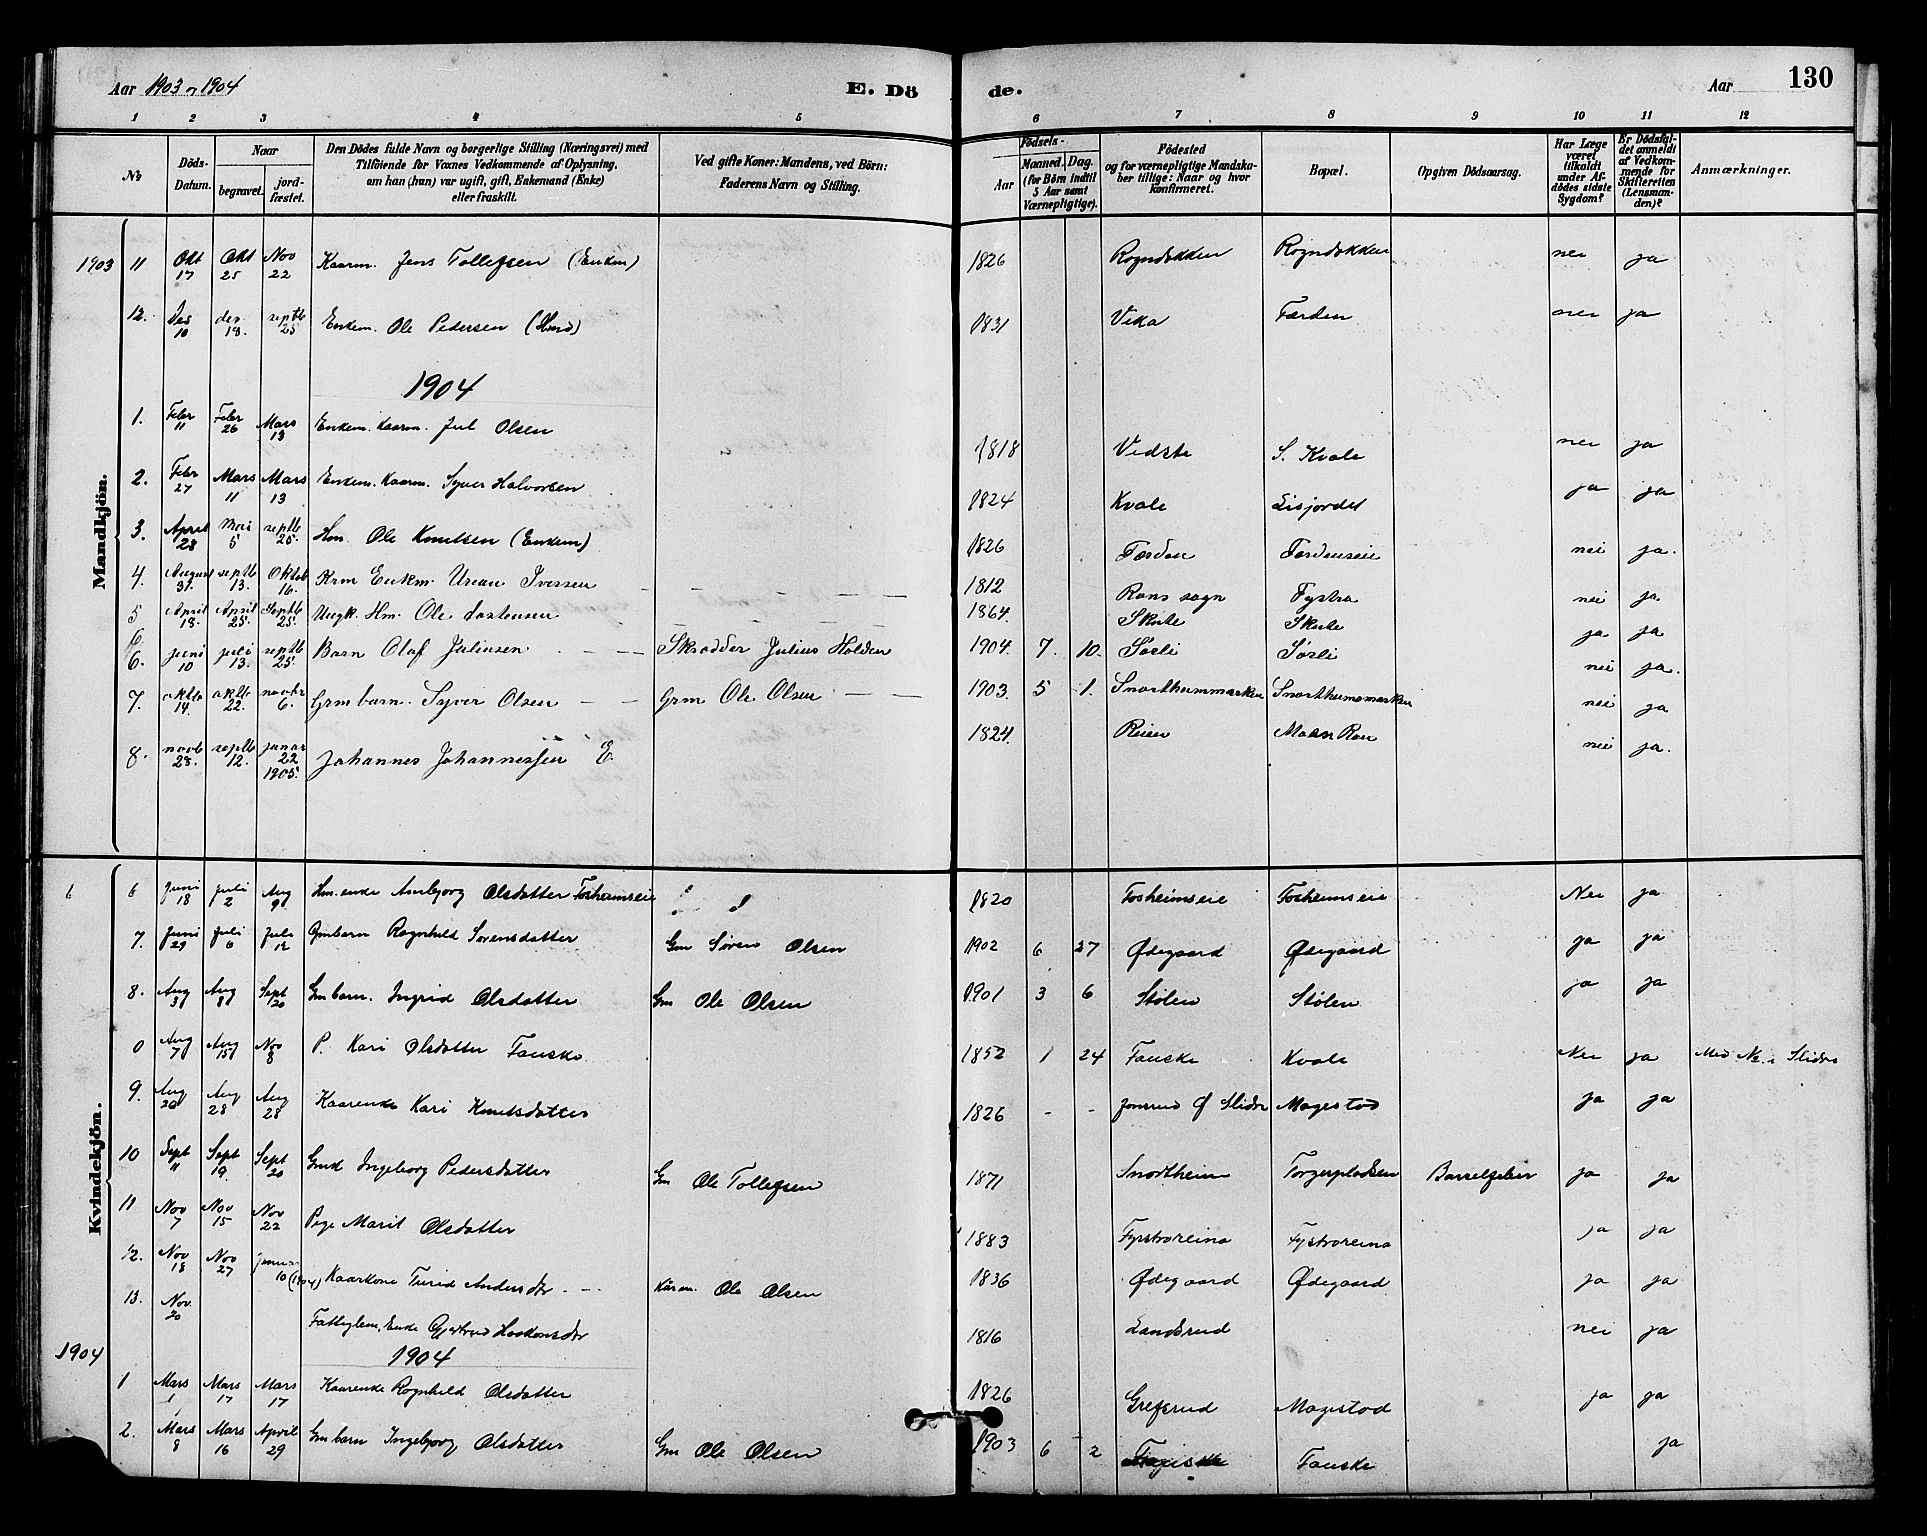 Aar 1903 og 1904 E. Dö de. Aar 130
1 2 3 4 5 6 7 8 9 10 11 12
No
Döds-Datum.
Naar
begravet.
jord-fæstet.
Den Dödes fulde Navn og borgerlige Stilling (Næringsvei) med Tilföiende for Voxnes Vedkommende af Oplysning, om han (hun) var ugift, gift, Enkemand (Enke) eller fraskilt.
Ved gifte Koner: Mandens, ved Börn: Faderens Navn og Stilling.
Födsels-
Aar
Maaned. Dag. (for Börn indtil 5 Aar samt Værnepligtige).
Födested og for værnepligtige Mandskaber tillige: Naar og hvor konfirmeret.
Bopæl.
Opgiven Dödsaarsag.
Har Læge været tilkaldt under Afdödes sidste Sygdom?
Er Dödsfaldet anmeldt af Vedkommende for Skifteretten (Lensmanden)?
Anmærkninger.
Mandkjön.
1903 11 Okt 17 Okt 25 Nov 22 Kaarm. Jens Tollefsen (Enkm) 1826 Rogndokken Rogndokken nei ja
12. Des 10 des 18. septb 25 Enkem. Ole Pedersen (Hmd) 1831 Vika Førden nei ja
1904
1. Febr 11 Febr 26 Mars 13 Enkem. Kaarm. Jul Olsen 1818 Vedste S. Kvale nei ja
2. Febr 27 Mars 11 Mars 13 Enkem. Kaarm. Syver Halvorsen 1824 Kvale Lisjordet ja ja
3. April 28 Mai 5 septb 25. Hm. Ole Knudsen (Enkem) 1826 Førden Førdenseie nei ja.
4. August 31. septb 13. Oktob 16. Krm Enkm. Urean Iversen 1812 Rons sogn Fystro nei ja
5 April 18. April 25. Septb 25. Ungk. Hm. Ole Jostensen 1864. Skute Skute ja ja
6. juni 10 juli 13. septb 25. Barn Olaf Juliusen Skrædder Julius Holden 1904. 7. 10. Sørli Sørli nei ja.
7. oktb 14. oktb 22. novbr 6. Grm barn. Syver Olsen Grm Ole Olsen 1903. 5 1. Snortheimmarken Snortheimsmarken nei ja
8. novb 28. septb 12. januar 22 1905. Johannes Johannessen E. 1824. Reien Moen Ron nei ja.
Kvindekjön.
6 6 Juni 18 juli 2 Aug 9 Hm. enke Anbjorg Olsdatter Fosheimseie 1820 Fosheimseie Fosheimseie Nei ja
7. Juni 29 Juli 6 Juli 12 Gmbarn Ragnhild Sørensdatter Gm Søren Olsen 1902 6 27 Ødegaard Ødegaard ja ja
8. Aug 3 Aug 8 Sept 20 Gmbarn. Ingrid Olsdatter Gm Ole Olsen 1901 3 6 Stølen Stølen ja ja
0 Aug 7 Aug 15 Nov 8 P. Kari Olsdatter Fauske. 1852 1 24 Fauske Kvale Nei ja Med No. i Slidre
9. Aug 20 Aug 28 Aug 28 Kaarenke Kari Knutsdatter 1826 - - Jonsrud Ø Slidre Magestad ja ja
10 Sept 11 Sept 19. Sept 20 Gmk Ingeborg Pedersdatter Gm Ole Tollefsen 1871 Snortheim Torgerpladsen Barselfeber ja ja
11 Nov 7 Nov 15 Nov 22 Pige Marit Olsdatter 1883 Fystroreina Fystroreina ja ja
12. Nov 18 Nov 27 januar 10 (1904) Kaarkone Turid Andersdtr Kaarm. Ole Olsen 1836 Ødegaard Ødegaard ja ja
13. Nov. 20 Fattiglem, Enke Gjertrud Haakonsdtr 1816 Landsrud nei ja
1904
1904
1 Mars 1 Mars 17 Mars 17 Kaarenke Ragnhild Olsdatter 1826 Grefsrud Magestad ja ja
2. Mars 8 Mars 16 April 29 Gmbarn Ingebjorg Olsdatter Gm Ole Olsen 1903 6 2 Fauske Fauske ja